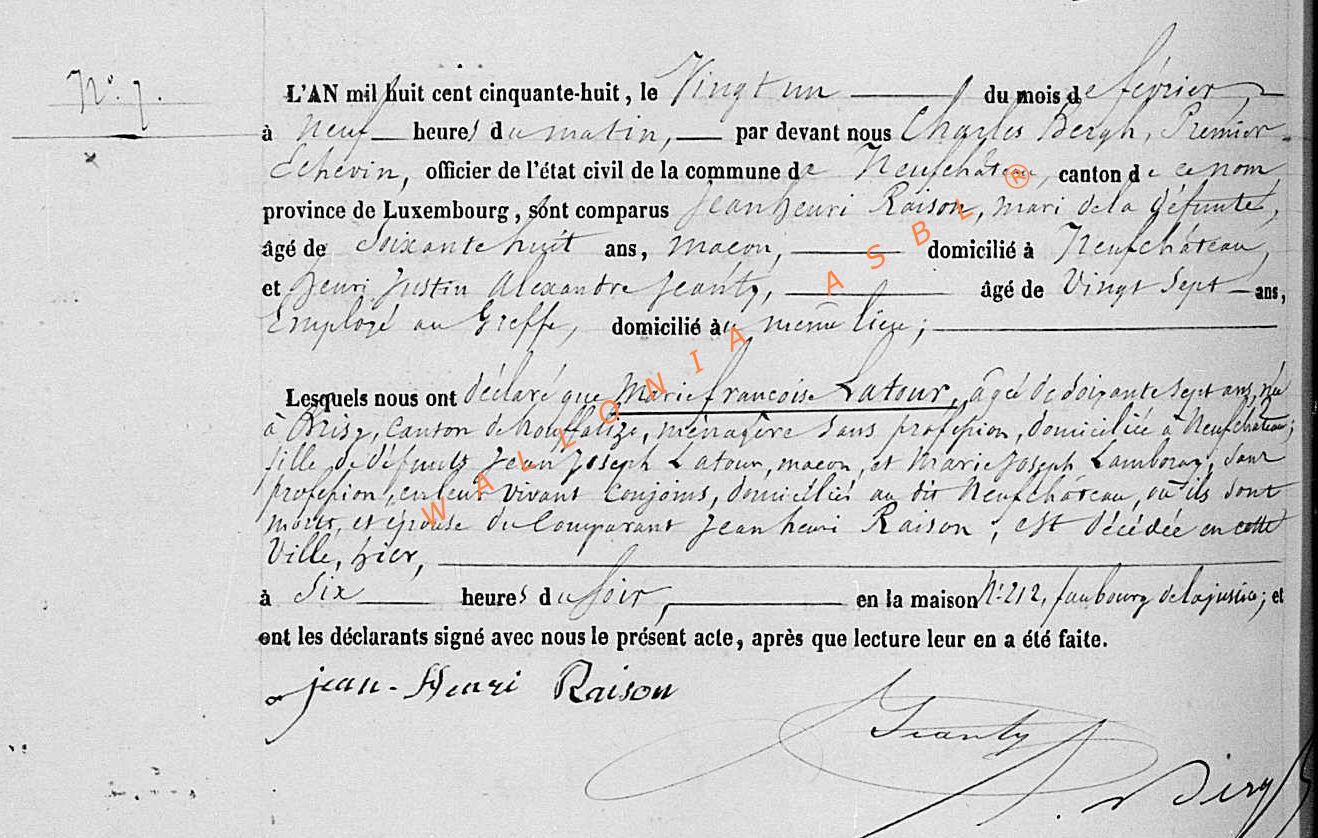 N° 7.
L'AN mil huit cent cinquante-huit, le Vingt un du mois de février,
à neuf heures du matin, par devant nous Charles Bergh, Premier
Echevin, officier de l'état civil de la commune de Neufchâteau, canton de ce nom
province de Luxembourg, sont comparus Jean henri Raison, mari de la défunte,
âgé de Soixante huit ans, macon, domicilié à Neufchâteau,
et henri Justin Alexandre Jeanty, âgé de Vingt Sept ans,
Employé au Greffe, domicilié au même lieu;
Lesquels nous ont déclaré que Marie françoise Latour, âgée de Soixante Sept ans, née
à Brisy, Canton de houffalize, ménagère Sans profession, domiciliée à Neufchâteau;
fille de défunts Jean Joseph Latour, macon, et Marie Joseph Lamboray, Sans
profession, en leur vivant Conjoins, domiciliés au dit Neufchâteau, où ils Sont
morts, et épouse du Comparant Jean henri Raison, est décédée en cette
Ville, hier,
à Six heures du Soir, en la maison N° 212, faubourg de la justice; et
ont les déclarants signé avec nous le présent acte, après que lecture leur en a été faite.
jean-Henri Raison
Jeanty
Bergh
WALLONIA ASBL ®